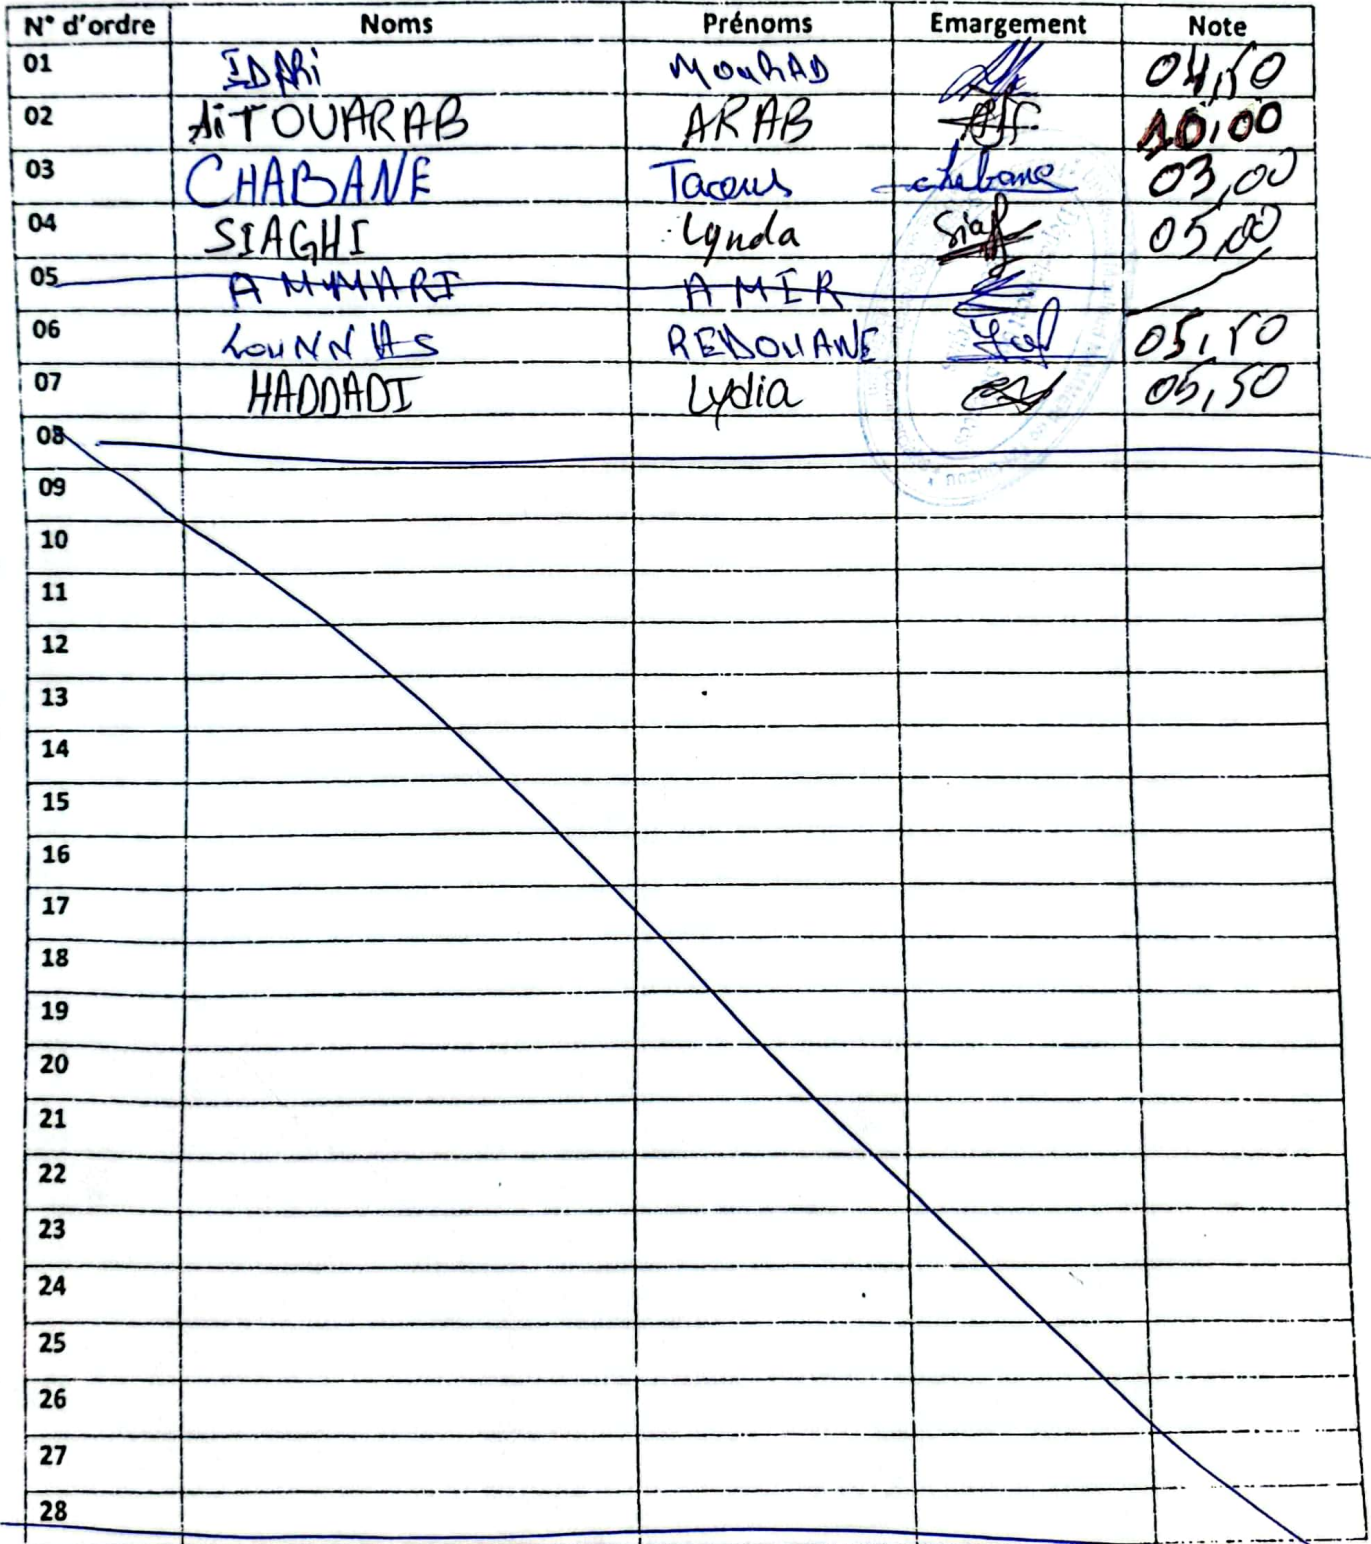 N° d'ordre Noms Prénoms Emargement Note
01 IDARi MouRAD 04,50
02 AiTOUARAB ARAB 10,00
03 CHABANE Tacous chabane 03,00
04 SIAGHI Lynda 05,00
05 AMMARI AMIR
06 LouNNAS REDOUANE 05,50
07 HADDADI Lydia 05,50
08
09
10
11
12
13
14
15
16
17
18
19
20
21
22
23
24
25
26
27
28